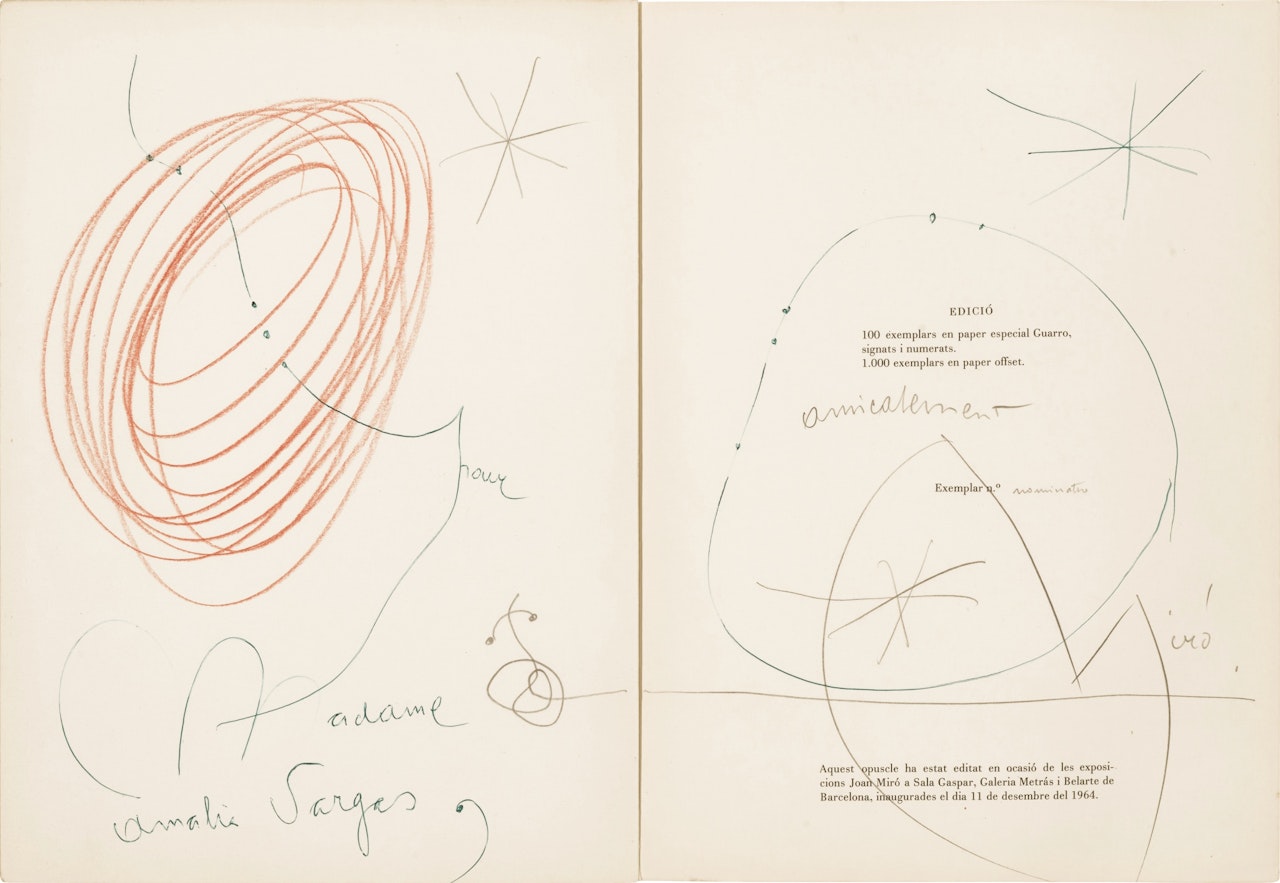 pour
Madame
Amalia Vargas
EDICIÓ
100 exemplars en paper especial Guarro,
signats i numerats.
1.000 exemplars en paper offset.
amicalement
Exemplar n.º nominatiu
Miró
Aquest opuscle ha estat editat en ocasió de les exposi-
cions Joan Miró a Sala Gaspar, Galeria Metrás i Belarte de
Barcelona, inaugurades el dia 11 de desembre del 1964.